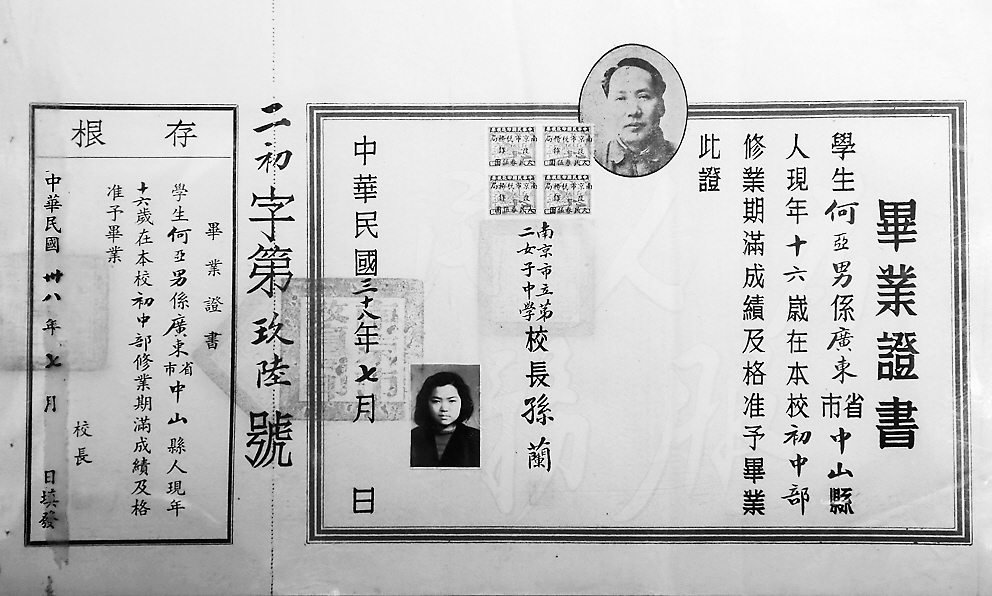 畢業證書
學生何亞男係廣東省市中山縣
人現年十六歲在本校初中部
修業期滿成績及格准予畢業
此證
南京市立第
二女子中学
校長孫蘭
中華民國三十八年七月 日
二初字第玖陸號
存根
畢業證書
學生何亞男係廣東省市中山縣人現年
十六歲在本校初中部修業期滿成績及格
准予畢業
校長
中華民國卅八年七月 日填發